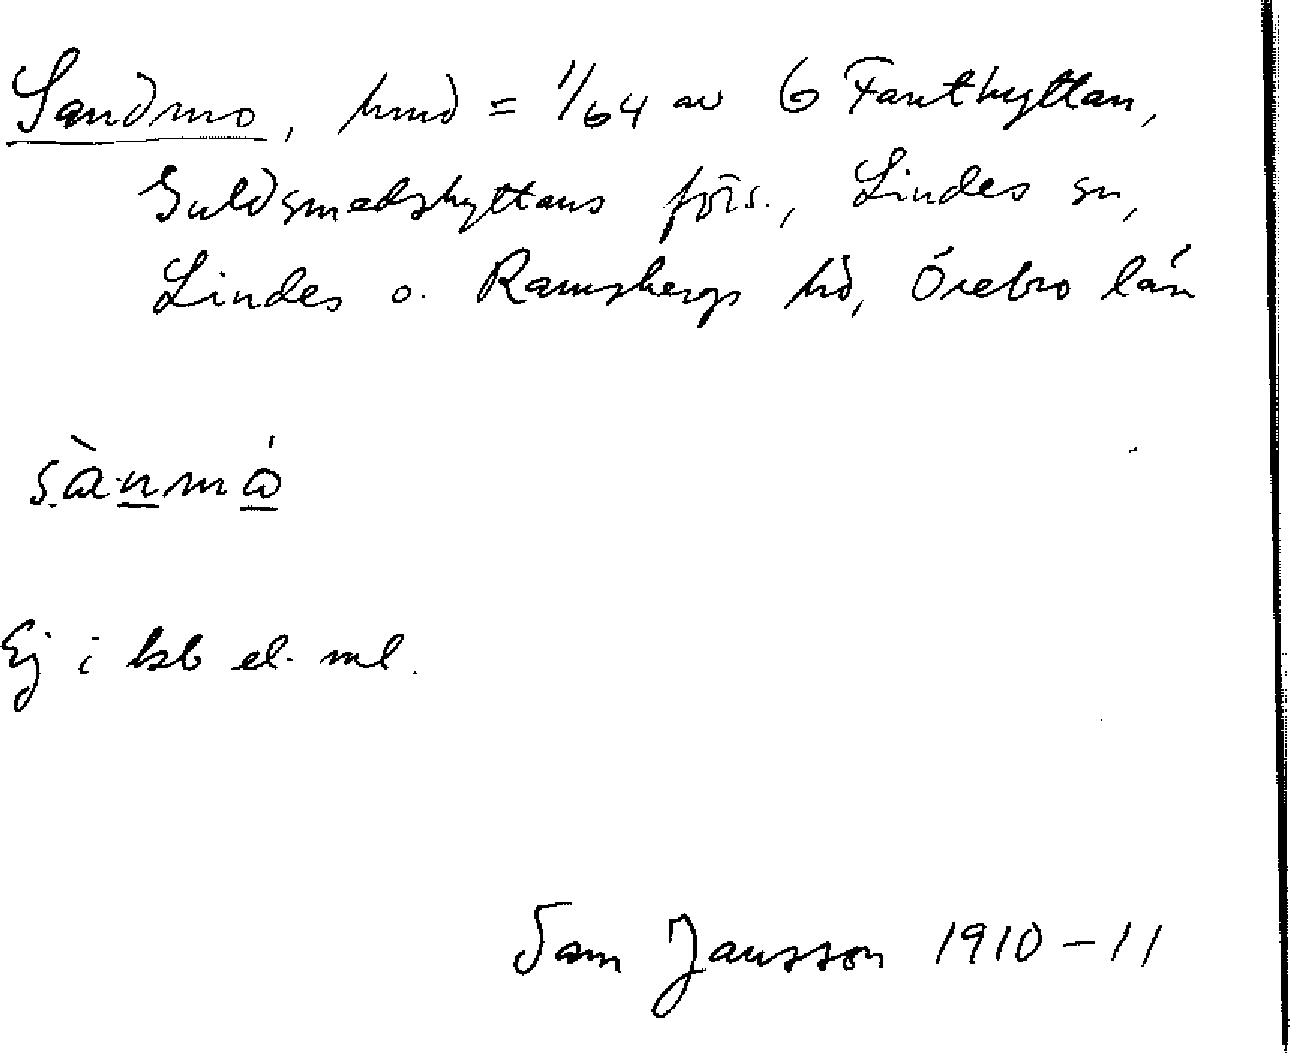 Sandmo, hmd = 1/64 av 6 Fanthyttan,
Guldsmedshyttans förs., Lindes sn,
Lindes o. Ramsbergs hd, Örebro län
sànmó
Ej i kb el. ml.
Sam Jansson 1910-11